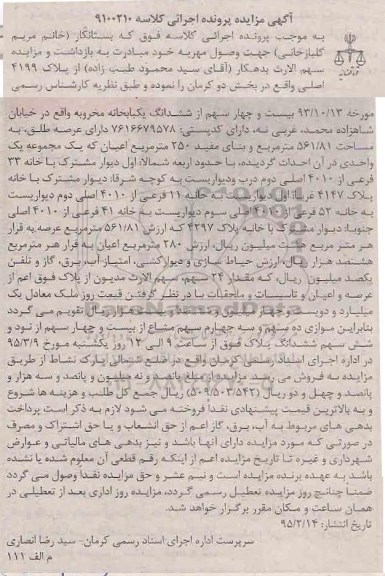 آگهی مزایده پرونده اجرائی کلاسه ۹۱۰۰۲۱۰
به موجب پرونده اجرائی کلاسه فوق که بستانکار (خانم مریم
گلبازخانی) جهت وصول مهریه خود مبادرت به بازداشت و مزایده
سهم الارث بدهکار (آقای سید محمود طبیب زاده) از پلاک ۴۱۹۹
اصلی واقع در بخش دو کرمان را نموده و طبق نظریه کارشناس رسمی
مورخه ۹۳/۱۰/۱۳ بیست و چهار سهم از ششدانگ یکبابخانه مخروبه واقع در خیابان
شاهزاده محمد، غربی نه، دارای کدپستی: ۷۶۱۶۶۷۹۵۷۸ دارای عرصه طلق، به
مساحت ۵۶۱/۸۱ مترمربع و بنای مفید ۲۵۰ مترمربع اعیان که یک مجموعه یک
واحدی در آن احداث گردیده، با حدود اربعه شمالا: اول دیوار مشترک با خانه ۳۳
فرعی از ۴۰۱۰ اصلی دوم درب ودیواریست به کوچه شرقا: دیوار مشترک با خانه
پلاک ۴۱۴۷ غربا: اول دیواریست به خانه ۱۱ فرعی از ۴۰۱۰ اصلی دوم دیواریست
به خانه ۵۲ فرعی از ۴۰۱۰ اصلی سوم دیواریست به خانه ۴۱ فرعی از ۴۰۱۰ اصلی
جنوبا: دیوار مشترک با خانه پلاک ۴۲۹۷ که ارزش ۵۶۱/۸۱ مترمربع عرصه به قرار
هر متر مربع هشت میلیون ریال، ارزش ۲۸۰ مترمربع اعیان به قرار هر مترمربع
هشتصد هزار ریال، ارزش حیاط سازی و دیوارکشی، امتیاز آب، برق، گاز و تلفن
یکصد میلیون ریال، که مقدار ۲۴ سهم، سهم الارث مدیون از پلاک فوق اعم از
عرصه و اعیان و تاسیسات و ملحقات با در نظر گرفتن قیمت روز ملک معادل یک
میلیارد و دویست و چهار میلیون و هشتصد و هزار ریال تقویم می گردد
بنابراین موازی ده سهم و سه چهارم سهم مشاع از بیست و چهار سهم از نود و
شش سهم ششدانگ پلاک فوق از ساعت ۹ الی ۱۲ روز یکشنبه مورخ ۹۵/۳/۹
در اداره اجرای اسناد رسمی کرمان واقع در ضلع شمالی پارک نشاط از طریق
مزایده به فروش می رسد. مزایده از مبلغ پانصد و نه میلیون و پانصد و سه هزار و
پانصد و چهل و دو ریال (۵۰۹/۵۰۳/۵۴۲) ریال جمع کل طلب و هزینه ها شروع
و به بالاترین قیمت پیشنهادی نقدا فروخته می شود لازم به ذکر است پرداخت
بدهی های مربوط به آب، برق، گاز اعم از حق انشعاب و یا حق اشتراک و مصرف
در صورتی که مورد مزایده دارای آنها باشد و نیز بدهی های مالیاتی و عوارض
شهرداری و غیره تا تاریخ مزایده اعم از اینکه رقم قطعی آن معلوم شده یا نشده
باشد به عهده برنده مزایده است و نیم عشر و حق مزایده نقدا وصول می گردد
ضمنا چنانچه روز مزایده تعطیل رسمی گردد، مزایده روز اداری بعد از تعطیلی در
همان ساعت و مکان مقرر برگزار خواهد شد.
تاریخ انتشار: ۹۵/۲/۱۴
سرپرست اداره اجرای اسناد رسمی کرمان- سید رضا انصاری
م الف ۱۱۱